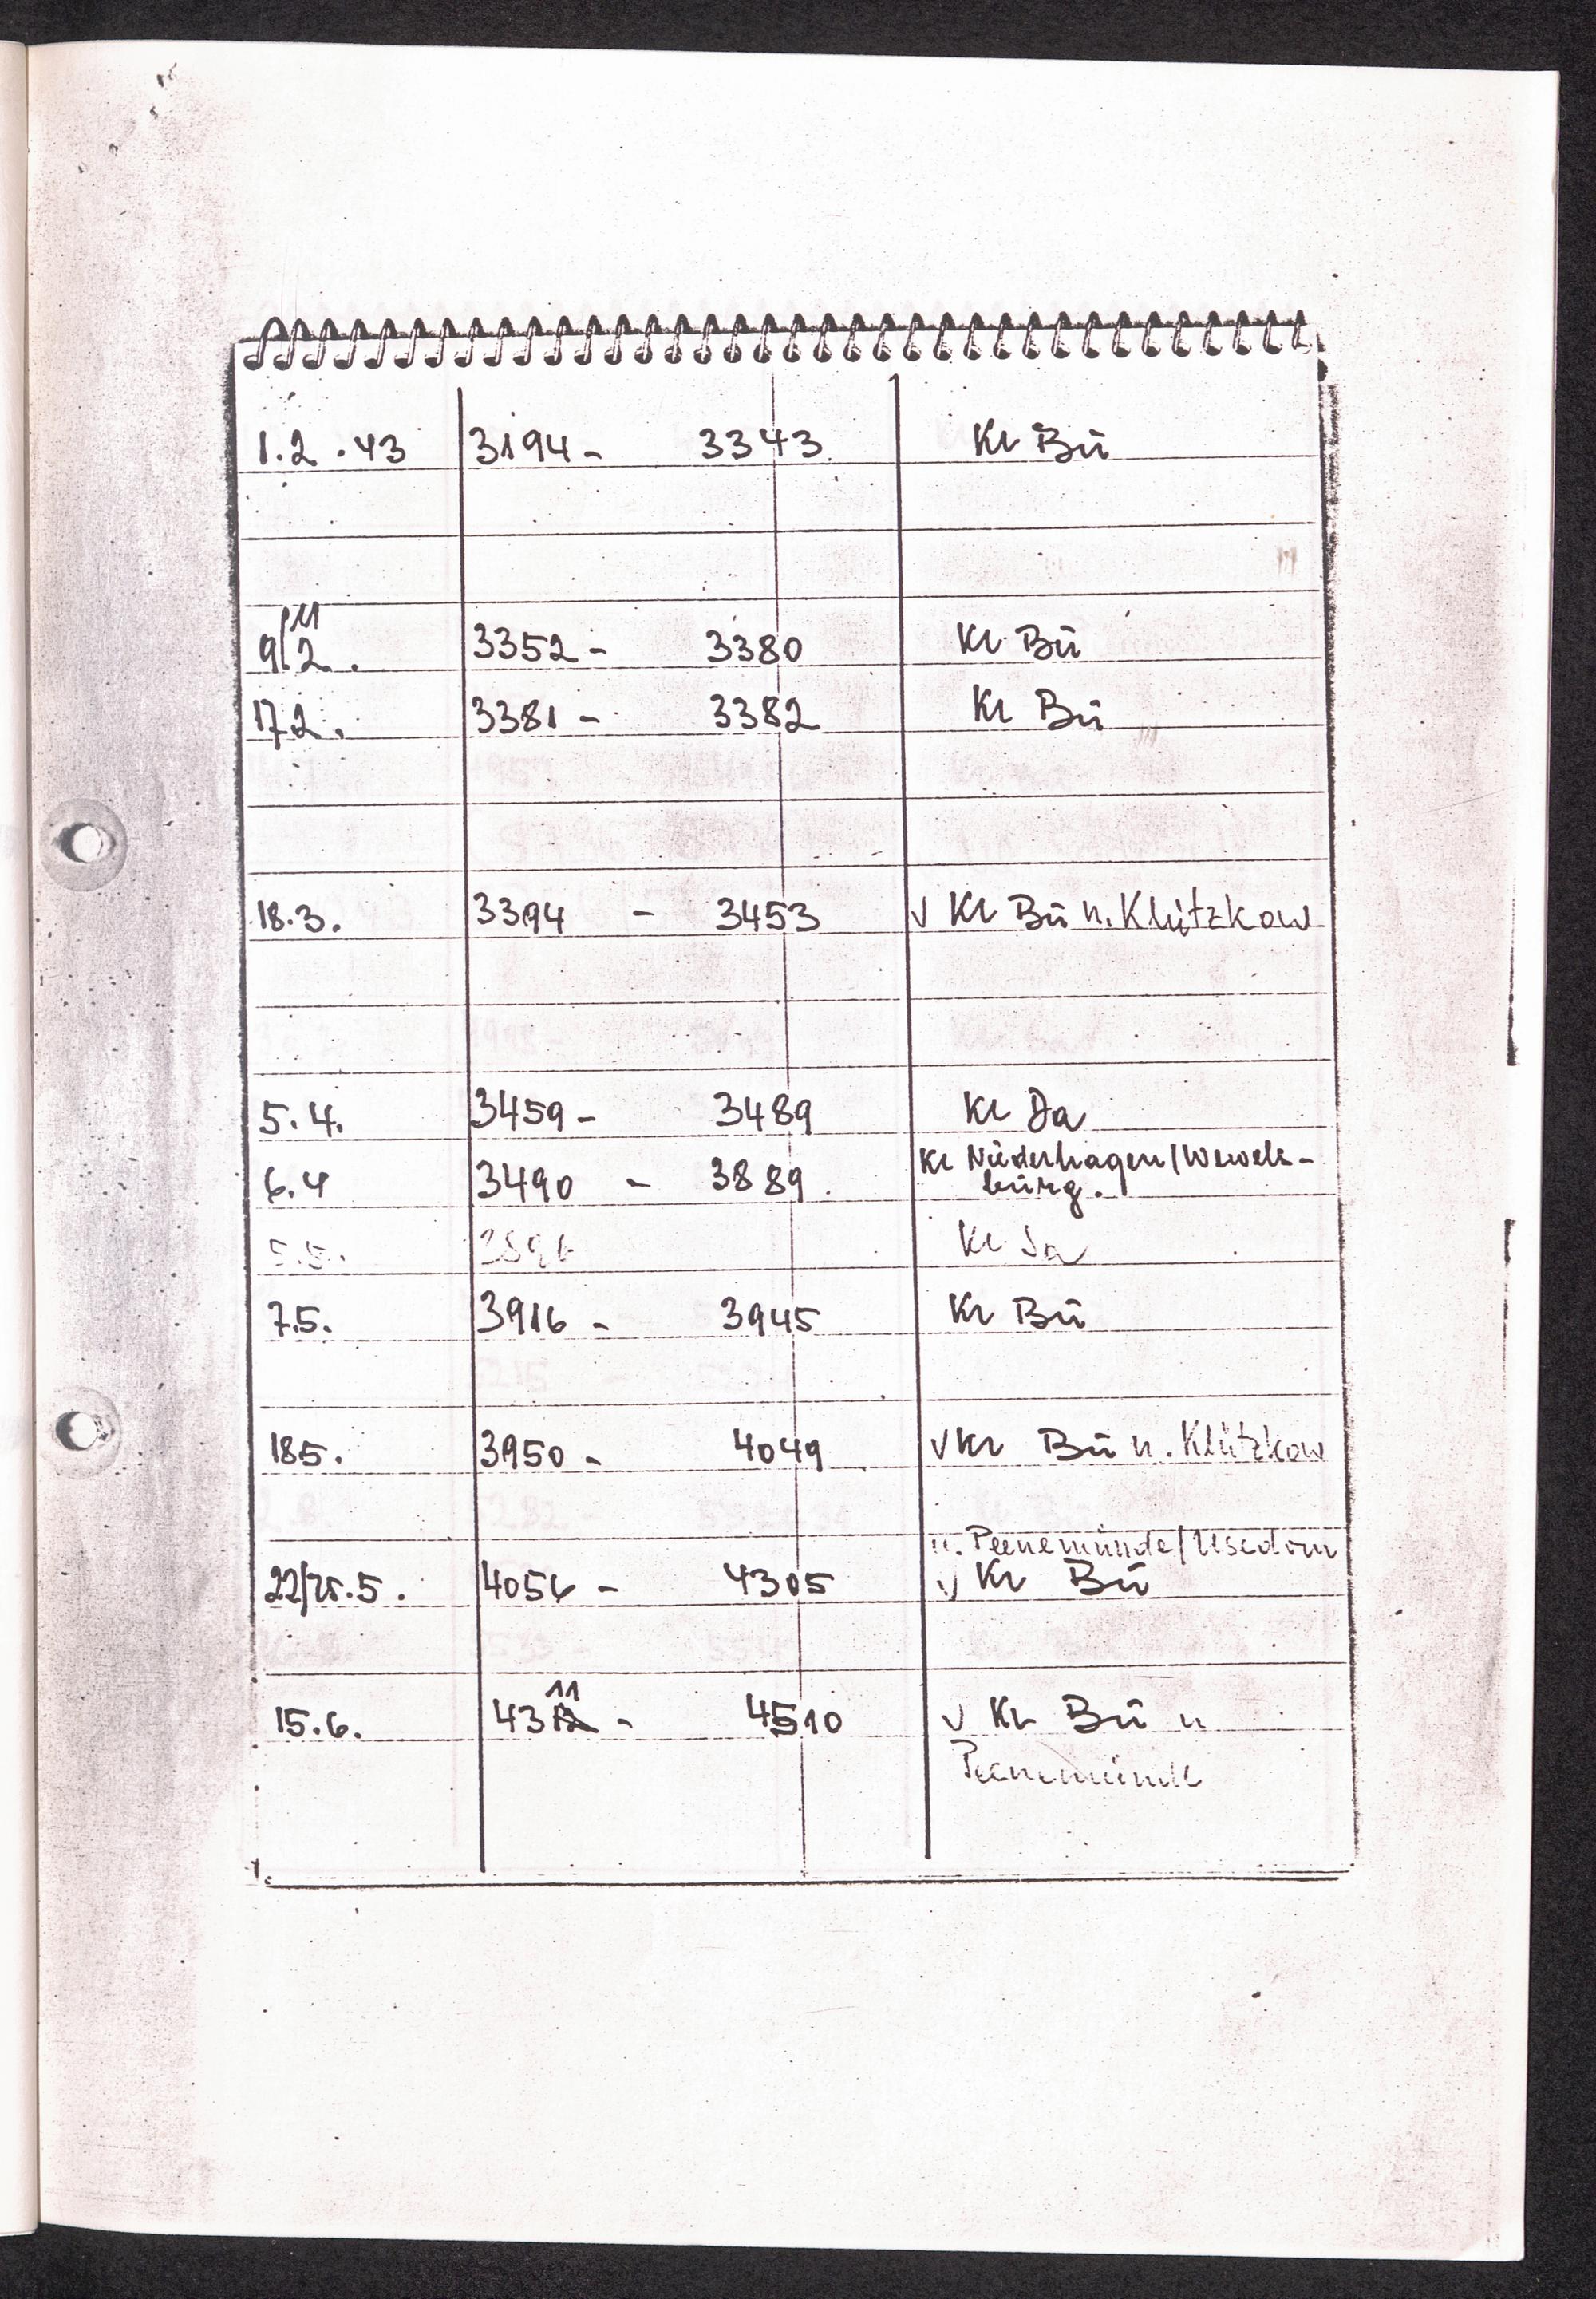 1.2.43 3194 - 3343 Kl Bü
9/11.2. 3352 - 3380 Kl Bü
17.2. 3381 - 3382 Kl Bü
18.3. 3394 - 3453 v Kl Bü n. Klützkow
5.4. 3459 - 3489 Kl Da
6.4 3490 - 3889. Kl Niederhagen/Wewels-
burg.
5.5. 3896 Kl Sa
7.5. 3916 - 3945 Kl Bü
18.5. 3950 - 4049 v Kl Bü n. Klützkow
n. Peenemünde/Usedom
22/25.5. 4056 - 4305 v Kl Bü
15.6. 4311 - 4510 v Kl Bü n
Peenemünde